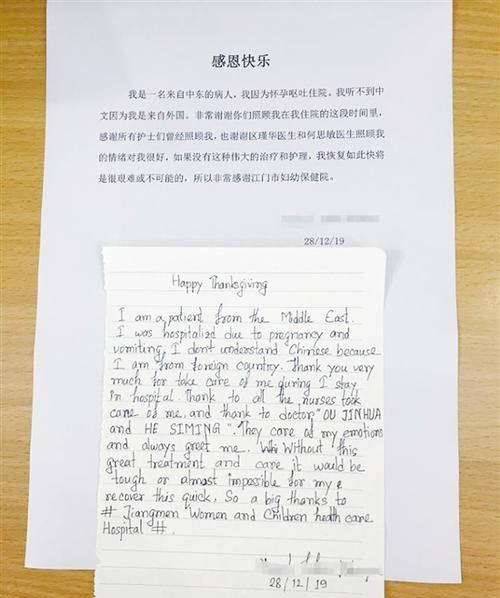 感恩快乐
我是一名来自中东的病人，我因为怀孕呕吐住院。我听不到中
文因为我是来自外国。非常谢谢你们照顾我在我住院的这段时间里，
感谢所有护士们曾经照顾我，也谢谢区瑾华医生和何思敏医生照顾我
的情绪对我很好，如果没有这种伟大的治疗和护理，我恢复如此快将
是很艰难或不可能的，所以非常感谢江门市妇幼保健院。
28/12/19
Happy Thanksgiving
I am a patient from the Middle East.
I was hospitalized due to pregnancy and
vomiting, I don't understand Chinese because
I am from foreign country. Thank you very
much for take care of me during I stay
in hospital. Thank to all the nurses took
care of me. and thank to doctor "OU JINHUA
and HE SIMING". They care of my emotions
and always greet me. Without this
great treatment and care it would be
tough or almost impossible for my
recover this quick. So a big thanks to
# Jiangmen Women and Children health care
Hospital #.
28/12/19